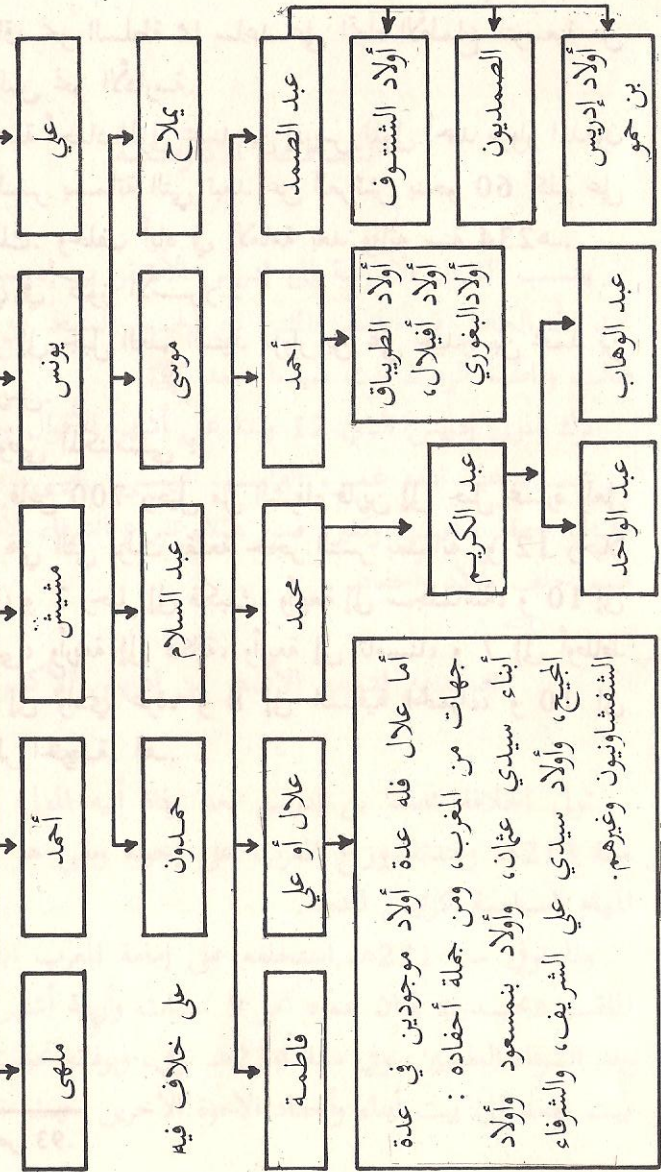 علي
يونس
مشيش
أحمد
ملهى
يملاح
موسى
عبد السلام
حمدون
على خلاف فيه
عبد الصمد
أحمد
محمد
علال أو علي
فاطمة
أولاد الشنتوف
الصمديون
أولاد إدريس
بن حمو
أولاد الطريباق
أولاد أفيلال،
أولاد البعوري
عبد الكريم
عبد الوهاب
عبد الواحد
أما علال فله عدة أولاد موجودين في عدة
جهات من المغرب، ومن جملة أحفاده :
أبناء سيدي عثمان، وأولاد بنمسعود وأولاد
المجيح، وأولاد سيدي علي الشريف، والشرفاء
الشفشاونيون وغيرهم.